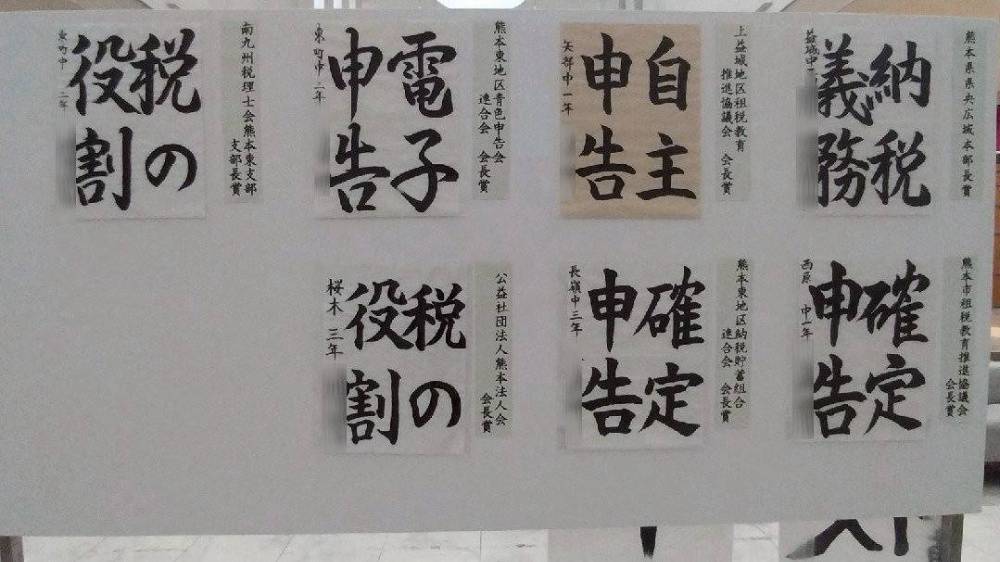 熊本県県央広域本部長賞
納税
義務
益城中
上益城地区租税教育
推進協議会 会長賞
自主
申告
矢部中一年
熊本東地区青色申告会
連合会 会長賞
電子
申告
東町中二年
南九州税理士会熊本東支部
支部長賞
税の
役割
東町中 二年
熊本市租税教育推進協議会
会長賞
確定
申告
西原 中一年
熊本東地区納税貯蓄組合
連合会 会長賞
確定
申告
長嶺中三年
公益社団法人熊本法人会
会長賞
税の
役割
桜木 三年